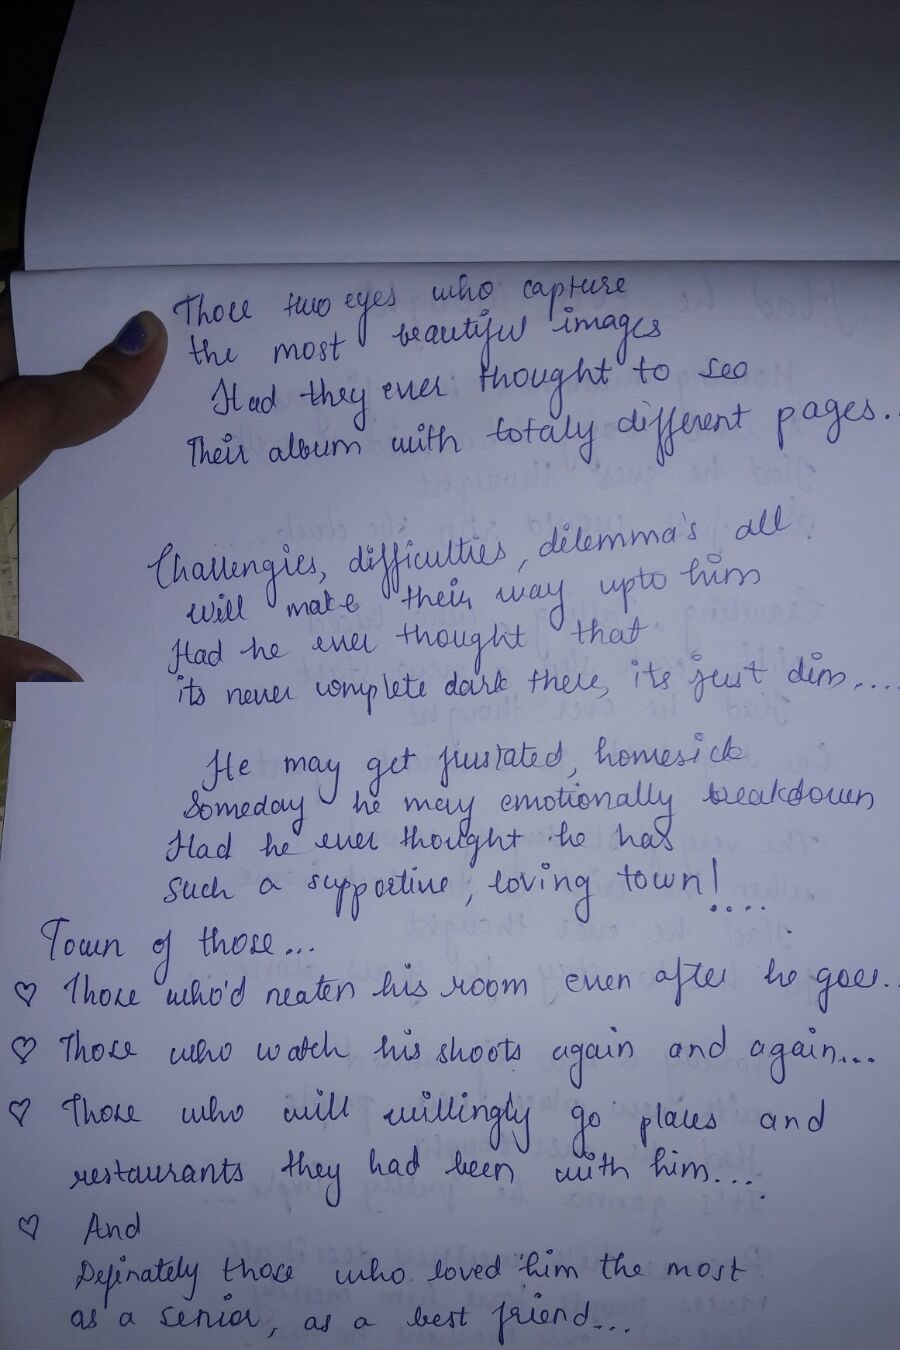 Those two eyes who capture
the most beautiful images
Had they ever thought to see
Their album with totaly different pages..
Challengies, difficulties, dilemma's all
will make their way upto him
Had he ever thought that
its never complete dark there, its just dim....
He may get frustated, homesick
Someday he may emotionally breakdown
Had he ever thought he has
Such a supportive, loving town!....
Town of those...
♡ Those who'd neaten his room even after he goes..
♡ Those who watch his shoots again and again...
♡ Those who will willingly go places and
restaurants they had been with him....
♡ And
Definately those who loved him the most
as a senior, as a best friend...